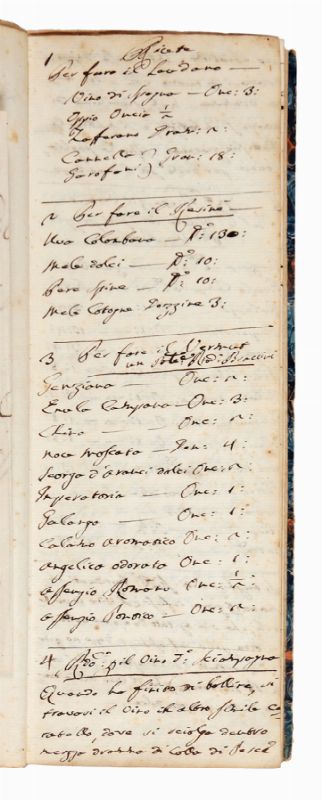 1 Ricete
Per fare il Laudano
Vino di Spagna — Onc: 3:
Oppio Oncia 1/2
Zafferano Gram: 2:
Cannella
Garofani } Gran: 18:
2 Per fare il Resinè
Uva Colombana — 130
Mele dolci — 10:
Pere spine — 10:
Mele Cotogne Dozzine 3:
3 Per fare il Vermut
un
Genziana Onc: 2:
Enula Campana — Onc: 3:
China — Onc: 2:
noce moscata — 4:
Scorza d'aranci dolci Onc: 2:
Imperatoria — Onc: 1:
Galanga — Onc: 1:
Calamo aromatico Onc: 2:
Angelica odorata Onc: 1:
assenzio Romano Onc: 1/2:
assenzio Pontico — Onc: 2:
4 p il Vino d: Sciampagna
Quando ha finito di bollire, si
travasi il Vino in altro simile Ca
ratello, dove si sciolga dentro
mezza dramma di Colla di Pesce